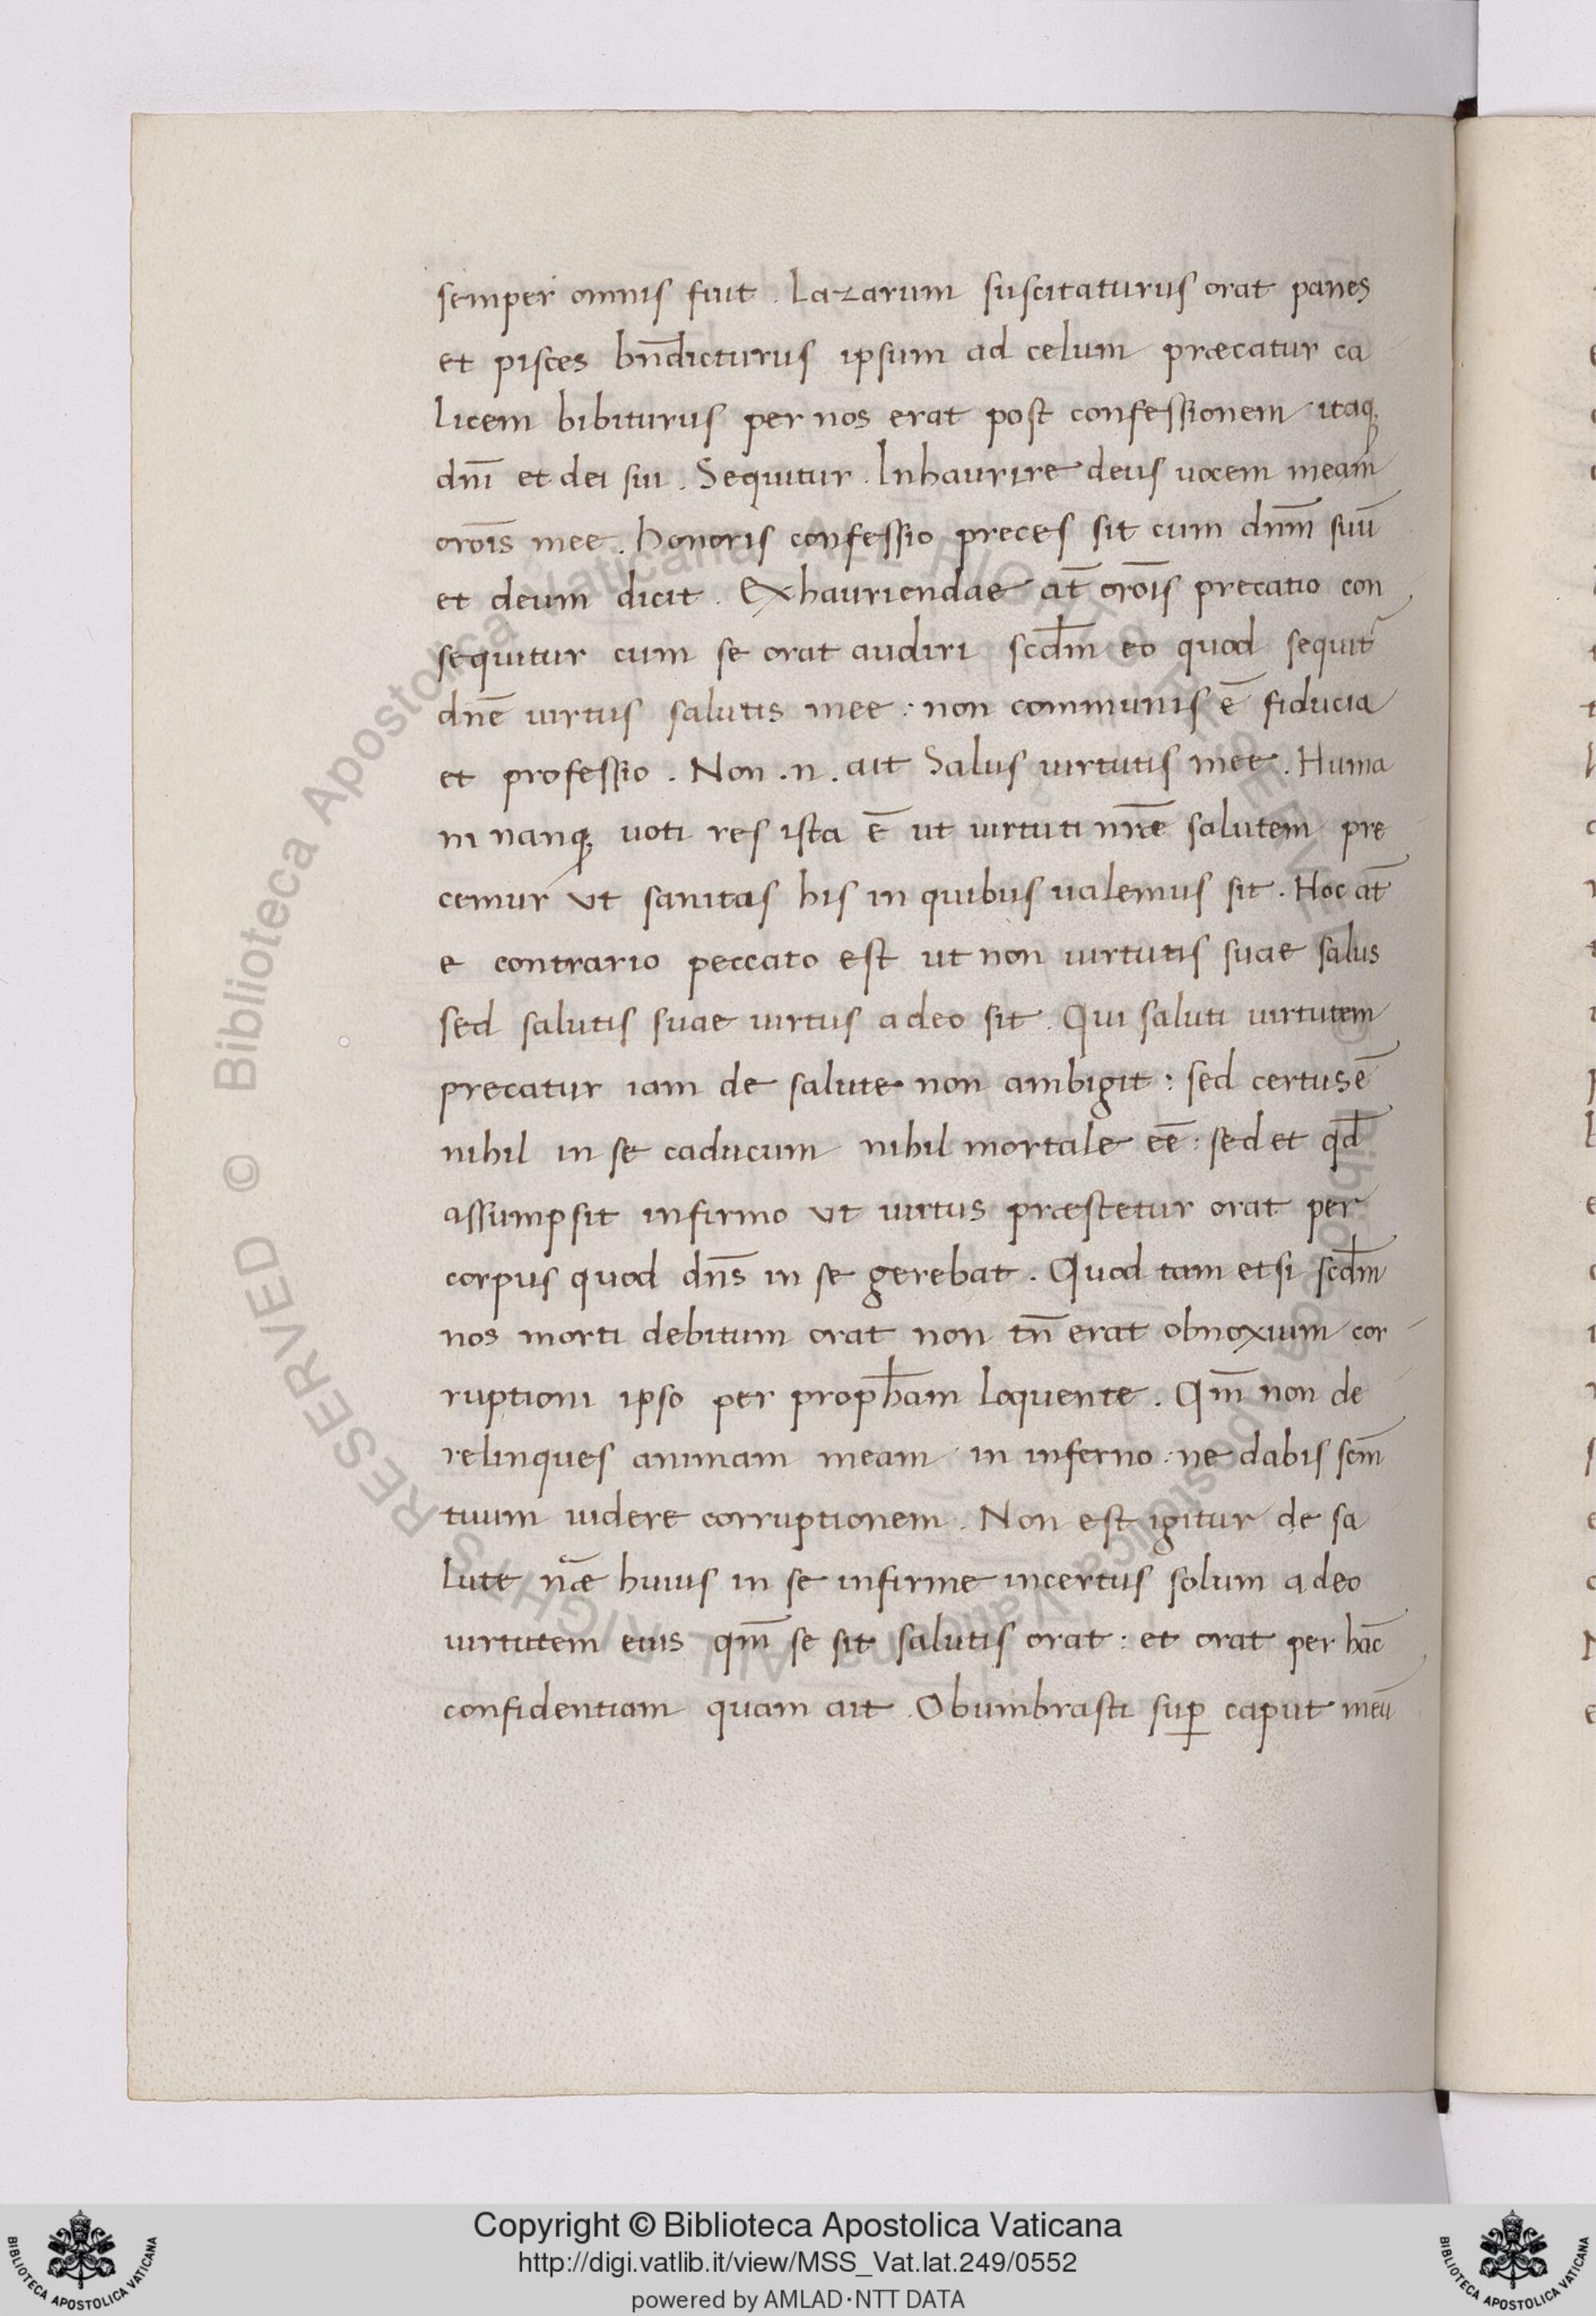 semper omnis fuit . Lazarum suscitaturus orat panes
et pisces bn̄dicturus ipsum ad celum præcatur ca
licem bibiturus per nos erat post confessionem itaq;
dn̄i et dei sui . Sequitur . Inhaurire deus uocem meam
orōis mee . honoris confessio preces sit cum dn̄m suū
et deum dicit . Exhauriendae at̄ orōis precatio con
sequitur cum se orat audiri scd̄m eo quod sequit᷑
dn̄e uirtus salutis mee : non communis ē fiducia
et professio . Non .n. ait Salus uirtutis mee . Huma
ni nanq; uoti res ista ē ut uirtuti nr̄æ salutem pre
cemur ut sanitas his in quibus ualemus sit . Hoc at̄
e contrario peccato est ut non uirtutis suae salus
sed salutis suae uirtus a deo sit . Qui saluti uirtutem
precatur iam de salute non ambigit : sed certus ē
nihil in se caducum nihil mortale eē : sed et qd̄
assumpsit infirmo ut uirtus præstetur orat per
corpus quod dn̄s in se gerebat . Quod tam etsi scd̄m
nos morti debitum orat non tn̄ erat obnoxium cor
ruptioni ipso per proph̄am loquente . Qm̄ non de
relinques animam meam in inferno : ne dabis scm̄
tuum uidere corruptionem . Non est igitur de sa
lute nāe huius in se infirme incertus solum a deo
uirtutem eius qm̄ se sit salutis orat : et orat per hāc
confidentiam quam ait . Obumbrasti suꝑ caput meū
© Biblioteca Apostolica Vaticana ALL RIGHTS RESERVED
Copyright © Biblioteca Apostolica Vaticana
http://digi.vatlib.it/view/MSS_Vat.lat.249/0552
powered by AMLAD·NTT DATA
BIBLIOTECA APOSTOLICA VATICANA
BIBLIOTECA APOSTOLICA VATICANA